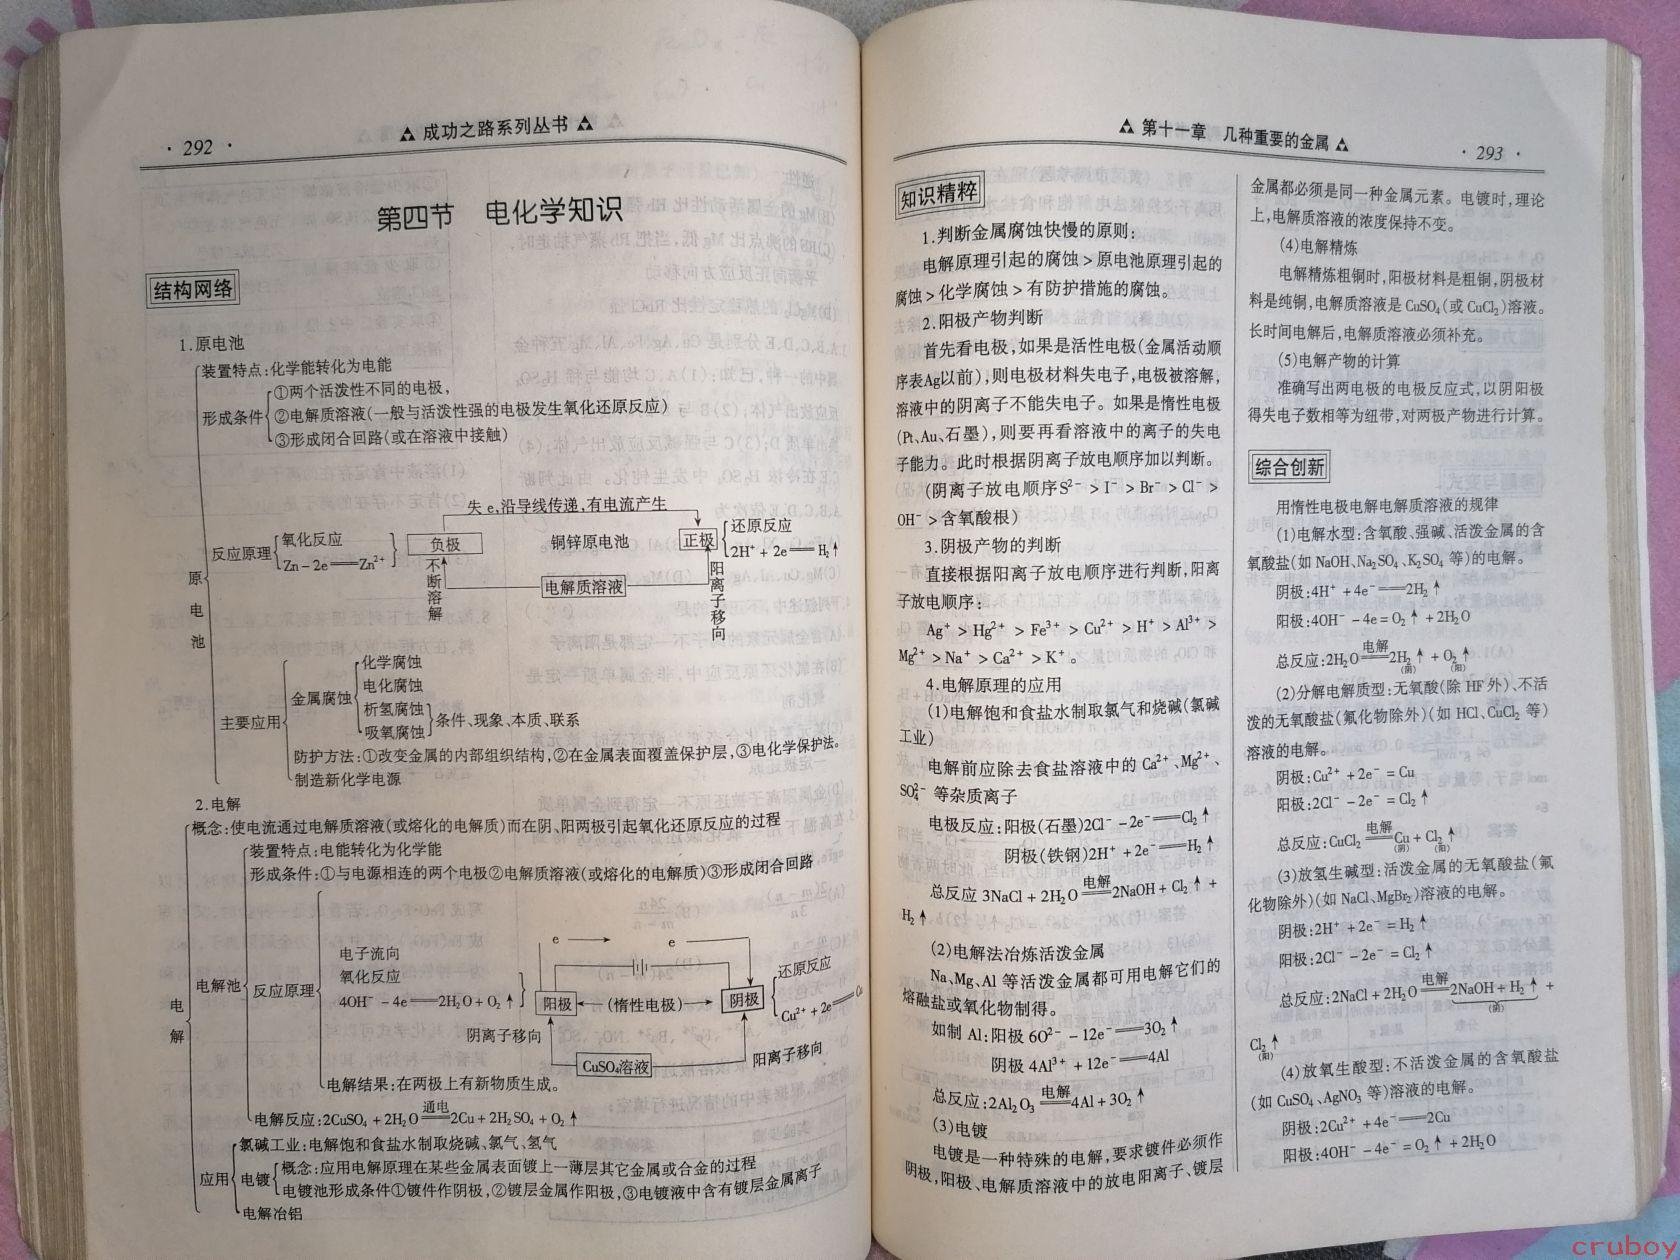 · 292 ·
成功之路系列丛书
第四节 电化学知识
结构网络
1.原电池
装置特点:化学能转化为电能
形成条件
①两个活泼性不同的电极,
②电解质溶液(一般与活泼性强的电极发生氧化还原反应)
③形成闭合回路(或在溶液中接触)
失 e,沿导线传递,有电流产生
反应原理
氧化反应
Zn - 2e══Zn²⁺
负极
铜锌原电池
正极
还原反应
2H⁺ + 2e══H₂↑
不断溶解
电解质溶液
阳离子移向
原电池
主要应用
金属腐蚀
化学腐蚀
电化腐蚀
析氢腐蚀
吸氧腐蚀
条件、现象、本质、联系
防护方法:①改变金属的内部组织结构,②在金属表面覆盖保护层,③电化学保护法。
制造新化学电源
2.电解
概念:使电流通过电解质溶液(或熔化的电解质)而在阴、阳两极引起氧化还原反应的过程
装置特点:电能转化为化学能
形成条件:①与电源相连的两个电极②电解质溶液(或熔化的电解质)③形成闭合回路
电解池
反应原理
电子流向
氧化反应
4OH⁻ - 4e══2H₂O + O₂↑
e
e
阳极
(惰性电极)
阴极
还原反应
Cu²⁺ + 2e══Cu
阴离子移向
CuSO₄溶液
阳离子移向
电解结果:在两极上有新物质生成。
电解反应:2CuSO₄ + 2H₂O══通电══2Cu + 2H₂SO₄ + O₂↑
电解
应用
氯碱工业:电解饱和食盐水制取烧碱、氯气、氢气
电镀
概念:应用电解原理在某些金属表面镀上一薄层其它金属或合金的过程
电镀池形成条件①镀件作阴极,②镀层金属作阳极,③电镀液中含有镀层金属离子
电解冶铝
第十一章 几种重要的金属
· 293 ·
知识精粹
1.判断金属腐蚀快慢的原则:
电解原理引起的腐蚀 > 原电池原理引起的
腐蚀 > 化学腐蚀 > 有防护措施的腐蚀。
2.阳极产物判断
首先看电极,如果是活性电极(金属活动顺
序表Ag以前),则电极材料失电子,电极被溶解,
溶液中的阴离子不能失电子。如果是惰性电极
(Pt、Au、石墨),则要再看溶液中的离子的失电
子能力。此时根据阴离子放电顺序加以判断。
(阴离子放电顺序S²⁻ > I⁻ > Br⁻ > Cl⁻ >
OH⁻ > 含氧酸根)
3.阴极产物的判断
直接根据阳离子放电顺序进行判断,阳离
子放电顺序:
Ag⁺ > Hg²⁺ > Fe³⁺ > Cu²⁺ > H⁺ > Al³⁺ >
Mg²⁺ > Na⁺ > Ca²⁺ > K⁺。
4.电解原理的应用
(1)电解饱和食盐水制取氯气和烧碱(氯碱
工业)
电解前应除去食盐溶液中的 Ca²⁺、Mg²⁺、
SO₄²⁻ 等杂质离子
电极反应:阳极(石墨)2Cl⁻ - 2e⁻══Cl₂↑
阴极(铁钢)2H⁺ + 2e⁻══H₂↑
总反应 3NaCl + 2H₂O══电解══2NaOH + Cl₂↑ +
H₂↑
(2)电解法冶炼活泼金属
Na、Mg、Al 等活泼金属都可用电解它们的
熔融盐或氧化物制得。
如制 Al:阳极 6O²⁻ - 12e⁻══3O₂↑
阴极 4Al³⁺ + 12e⁻══4Al
总反应:2Al₂O₃══电解══4Al + 3O₂↑
(3)电镀
电镀是一种特殊的电解,要求镀件必须作
阴极,阳极、电解质溶液中的放电阳离子、镀层
金属都必须是同一种金属元素。电镀时,理论
上,电解质溶液的浓度保持不变。
(4)电解精炼
电解精炼粗铜时,阳极材料是粗铜,阴极材
料是纯铜,电解质溶液是 CuSO₄(或 CuCl₂)溶液。
长时间电解后,电解质溶液必须补充。
(5)电解产物的计算
准确写出两电极的电极反应式,以阴阳极
得失电子数相等为纽带,对两极产物进行计算。
综合创新
用惰性电极电解电解质溶液的规律
(1)电解水型:含氧酸、强碱、活泼金属的含
氧酸盐(如 NaOH、Na₂SO₄、K₂SO₄ 等)的电解。
阴极:4H⁺ + 4e⁻══2H₂↑
阳极:4OH⁻ - 4e = O₂↑ + 2H₂O
总反应:2H₂O══电解══2H₂↑(阴) + O₂↑(阳)
(2)分解电解质型:无氧酸(除 HF 外)、不活
泼的无氧酸盐(氟化物除外)(如 HCl、CuCl₂ 等)
溶液的电解。
阴极:Cu²⁺ + 2e⁻ = Cu
阳极:2Cl⁻ - 2e⁻ = Cl₂↑
总反应:CuCl₂══电解══Cu(阴) + Cl₂↑(阳)
(3)放氢生碱型:活泼金属的无氧酸盐(氟
化物除外)(如 NaCl、MgBr₂)溶液的电解。
阴极:2H⁺ + 2e⁻ = H₂↑
阳极:2Cl⁻ - 2e⁻ = Cl₂↑
总反应:2NaCl + 2H₂O══电解══2NaOH + H₂↑(阴) +
Cl₂↑(阳)
(4)放氧生酸型:不活泼金属的含氧酸盐
(如 CuSO₄、AgNO₃ 等)溶液的电解。
阴极:2Cu²⁺ + 4e⁻══2Cu
阳极:4OH⁻ - 4e⁻ = O₂↑ + 2H₂O
cruboy